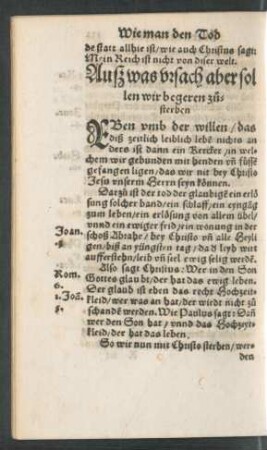 Wie man den Tod
de statt allhie ist/ wie auch Christus sagt:
Mein Reich ist nicht von diser welt.
Auß was vrsach aber sol
len wir begeren zů
sterben
EBen vmb der willen/ das
diß zeitlich leiblich lebẽ nichts an
ders ist dann ein Kercker/ in wel-
chem wir gebunden mit henden vñ füssẽ
gefangen ligen/ das wir nit bey Christo
Jesu vnserm Herrn seyn können.
Darzů ist der tod der glaubigẽ ein erlö
sung solcher band/ ein schlaff/ ein eyngãg
zum leben/ ein erlösung von allem übel/
vnnd ein ewiger frid/ ein wonung in der
Joan. schoß Abrahe/ bey Christo vñ alle Heyli
gen/ biß an jüngsten tag/ da ð leyb wirt
aufferstehn/ leib vñ seel ewig selig werdẽ.
Also sagt Christus: Wer in den Son
Rom. Gottes glaubt/ der hat das ewig leben.
6. Der glaub ist eben das recht Hochzeit-
1. Joã. kleid/ wer was an hat/ der wirdt nicht zů
5. schanden werden. Wie Paulus sagt: Dañ
wer den Son hat/ vnnd das Hochzeyt-
kleid/ der hat das leben.
So wir nun mit Christo sterben/ wer-
den